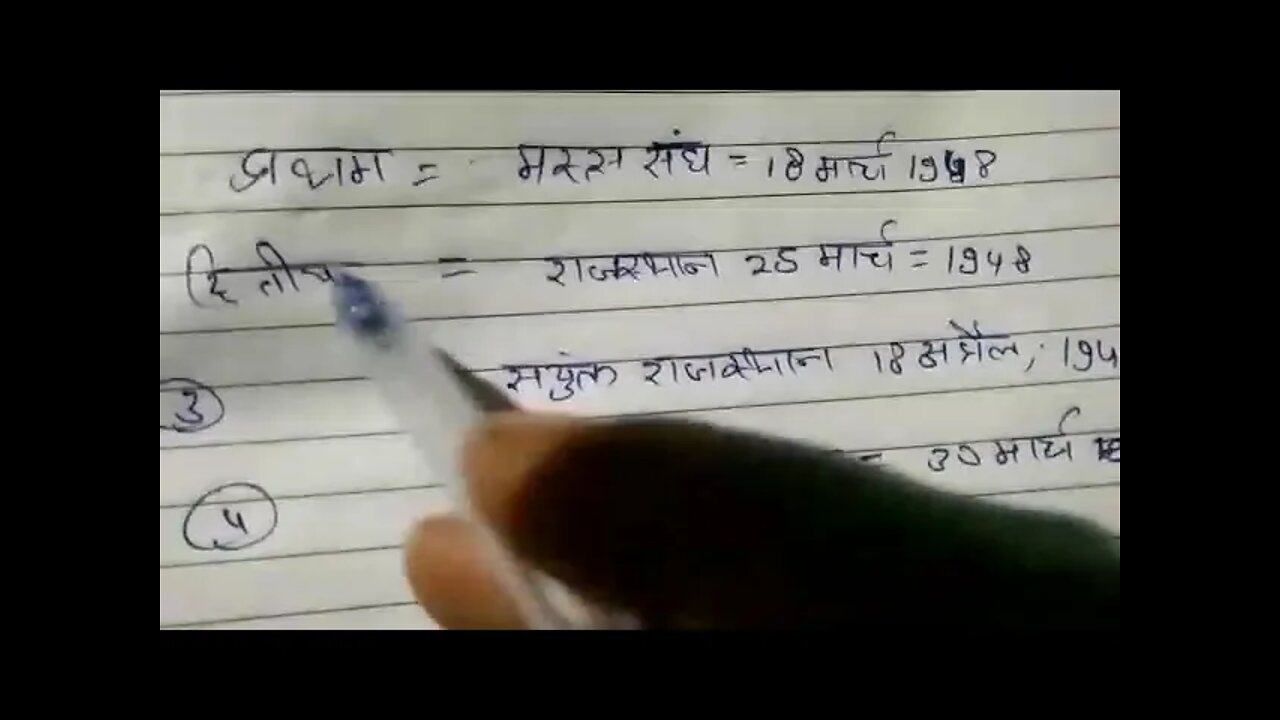 प्रथाम = मत्स्य संघ = 18 मार्च 1948
द्वितीय = राजस्थान 25 मार्च = 1948
3 सयुंक्त राजस्थान 18 अप्रैल, 194
4 = 30 मार्च